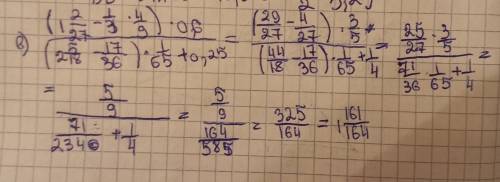 в) ((1 2/27 − 1/3 · 4/9) · 0,6) / ((2 8/18 − 17/36) · 1/65 + 0,25) = ((29/27 − 4/27) · 3/5) / ((44/18 − 17/36) · 1/65 + 1/4) = (25/27 · 3/5) / (71/36 · 1/65 + 1/4) =
= (5/9) / (71/2340 + 1/4) = (5/9) / (164/585) = 325/164 = 1 161/164